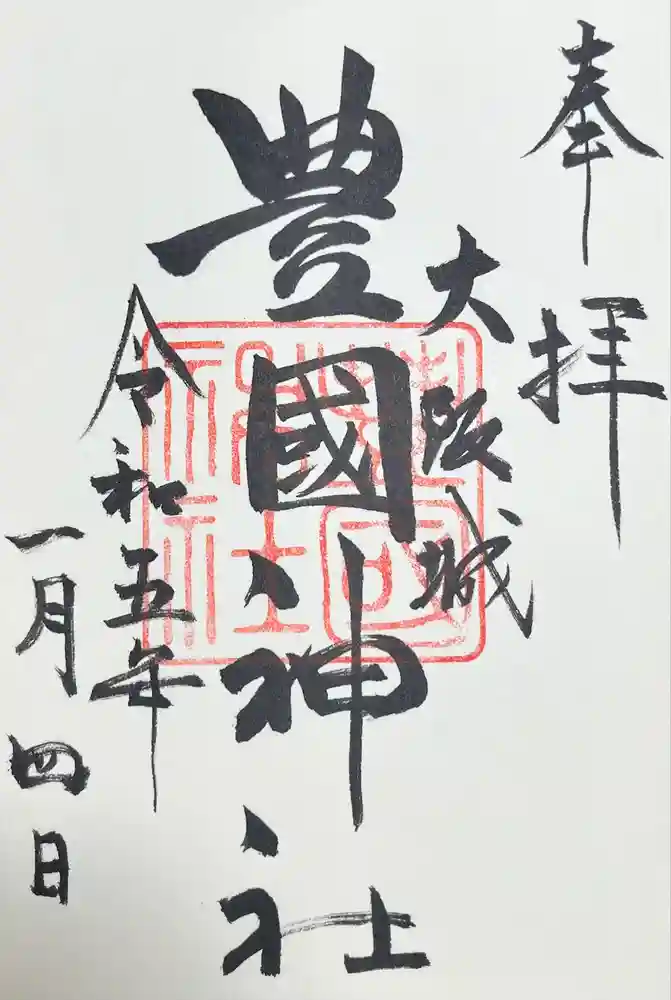 奉拝
大阪城
豊國神社
豊國神社
令和五年
一月四日